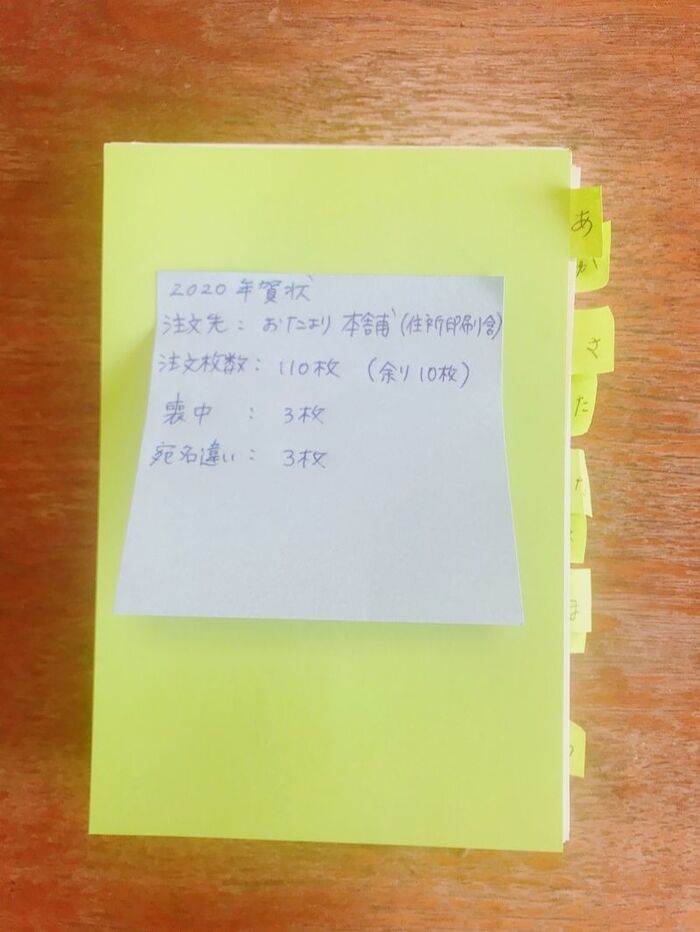 2020 年賀状
注文先： おたより 本舗（住所印刷含）
注文枚数： 110枚 （余り10枚）
喪中 ： 3枚
宛名違い： 3枚
あ
か
さ
た
ま